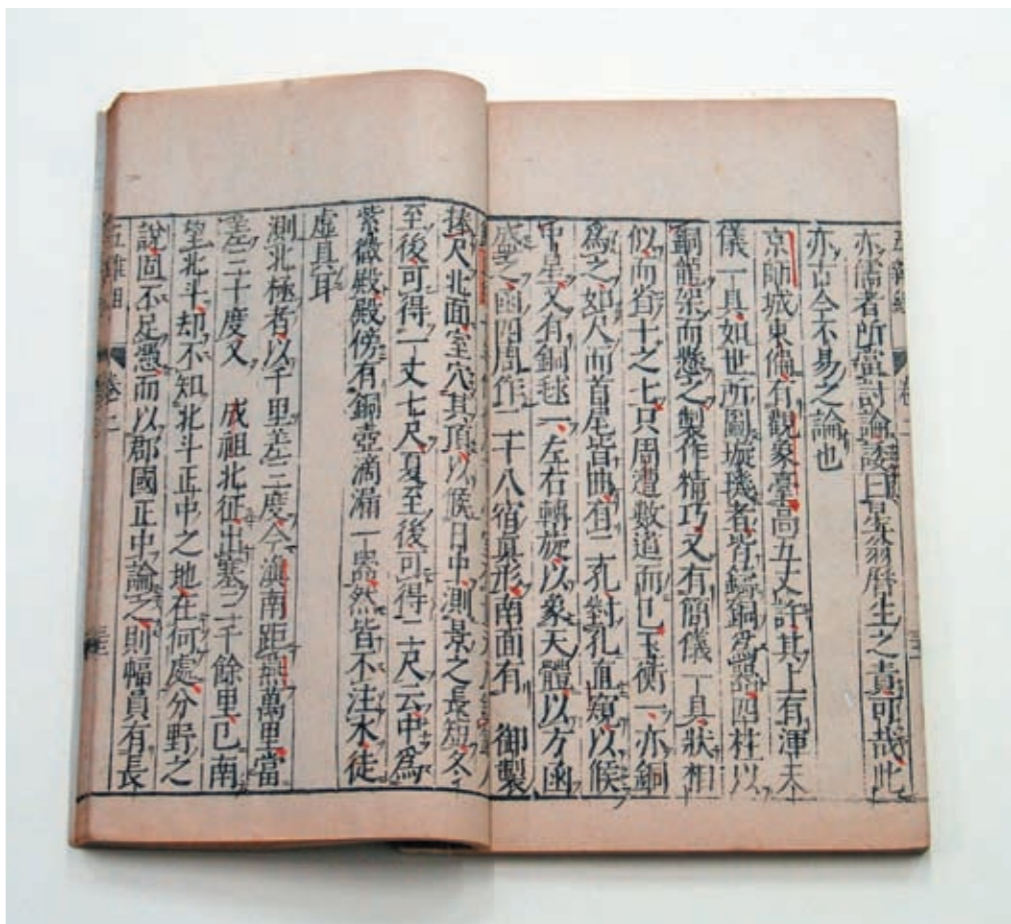 亦儒者所當討論諉曰星翁曆生之責可哉此
亦古今不易之論也
京師城東偏有觀象臺高五丈許其上有渾天
儀一具如世所圖璇璣者皆鑄銅爲器四柱以
銅龍架而懸之製作精巧又有簡儀一具狀相
似而省十之七只周遭數道而已玉衡一亦銅
爲之如尺而首尾皆曲有二孔對孔直窺以候
中星又有銅毬一左右轉旋以象天體以方函
盛之函四周作二十八宿眞形南面有　御製
捧尺北面室穴其頂以候日中測景之長短冬
至後可得一丈七尺夏至後可得二尺云中爲
紫微殿殿傍有銅壺滴漏一器然皆不注水徒
虛具耳
測北極者以千里差三度今滇南距燕萬里當
差三十度又　成祖北征出塞三千餘里已南
望北斗却不知北斗正中之地在何處分野之
說固不足憑而以郡國正中論之則幅員有長
五雜組　卷二